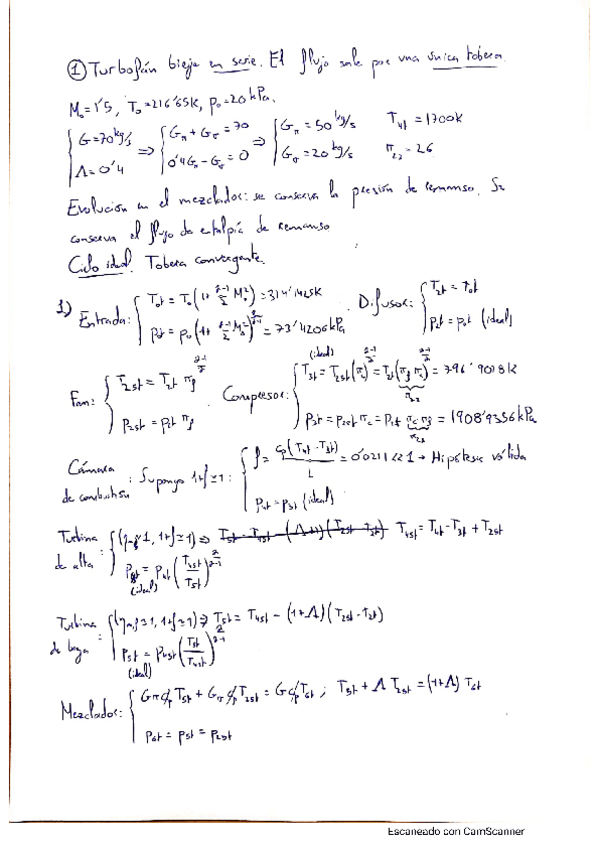 ① Turbofán biflujo en serie. El flujo sale por una única tobera.
M₀=1'5, T₀=216'65K, p₀=20kPa.
{G=70 kg/s ; Λ=0'4 => {Gπ+Gσ=70 ; 0'4Gπ-Gσ=0 => {Gπ=50 kg/s ; Gσ=20 kg/s T4t=1700K π23=26
Evolución en el mezclador: se conserva la presión de remanso. Se
conserva el flujo de entalpía de remanso
Ciclo ideal. Tobera convergente.
1) Entrada: {T0t=T0(1+(γ-1)/2 M0²)=314'1425K ; p0t=p0(1+(γ-1)/2 M0²)^(γ/(γ-1))=73'4206kPa. Difusor: {T2t=T0t ; p2t=p0t (ideal)
Fan: {T2.5t=T2t πf^((γ-1)/γ) ; p2.5t=p2t πf. Compresor: {(ideal) T3t=T2.5t(πc)^((γ-1)/γ)=T2t(πf πc)^((γ-1)/γ)=796'9018K ; p3t=p2.5t πc=p2t πc πf=1908'9356kPa
π23
π23
Cámara de combustión: Supongo 1+f≃1: {f=cp(T4t-T3t)/L=0'0211≪1 → Hipótesis válida ; p4t=p3t (ideal)
Turbina de alta: {(1+f≃1) => T4.5t=T4t-T3t+T2.5t
(ideal)
Turbina de baja: {(1+f≃1) => T5t=T4.5t-(1+Λ)(T2.5t-T2t) ; p5t=p4.5t(T5t/T4.5t)^(γ/(γ-1))
(ideal)
Mezclador: {Gπ cp T5t+Gσ cp T2.5t=G cp T6t ; T5t+Λ T2.5t=(1+Λ) T6t
p6t=p5t=p2.5t
Escaneado con CamScanner